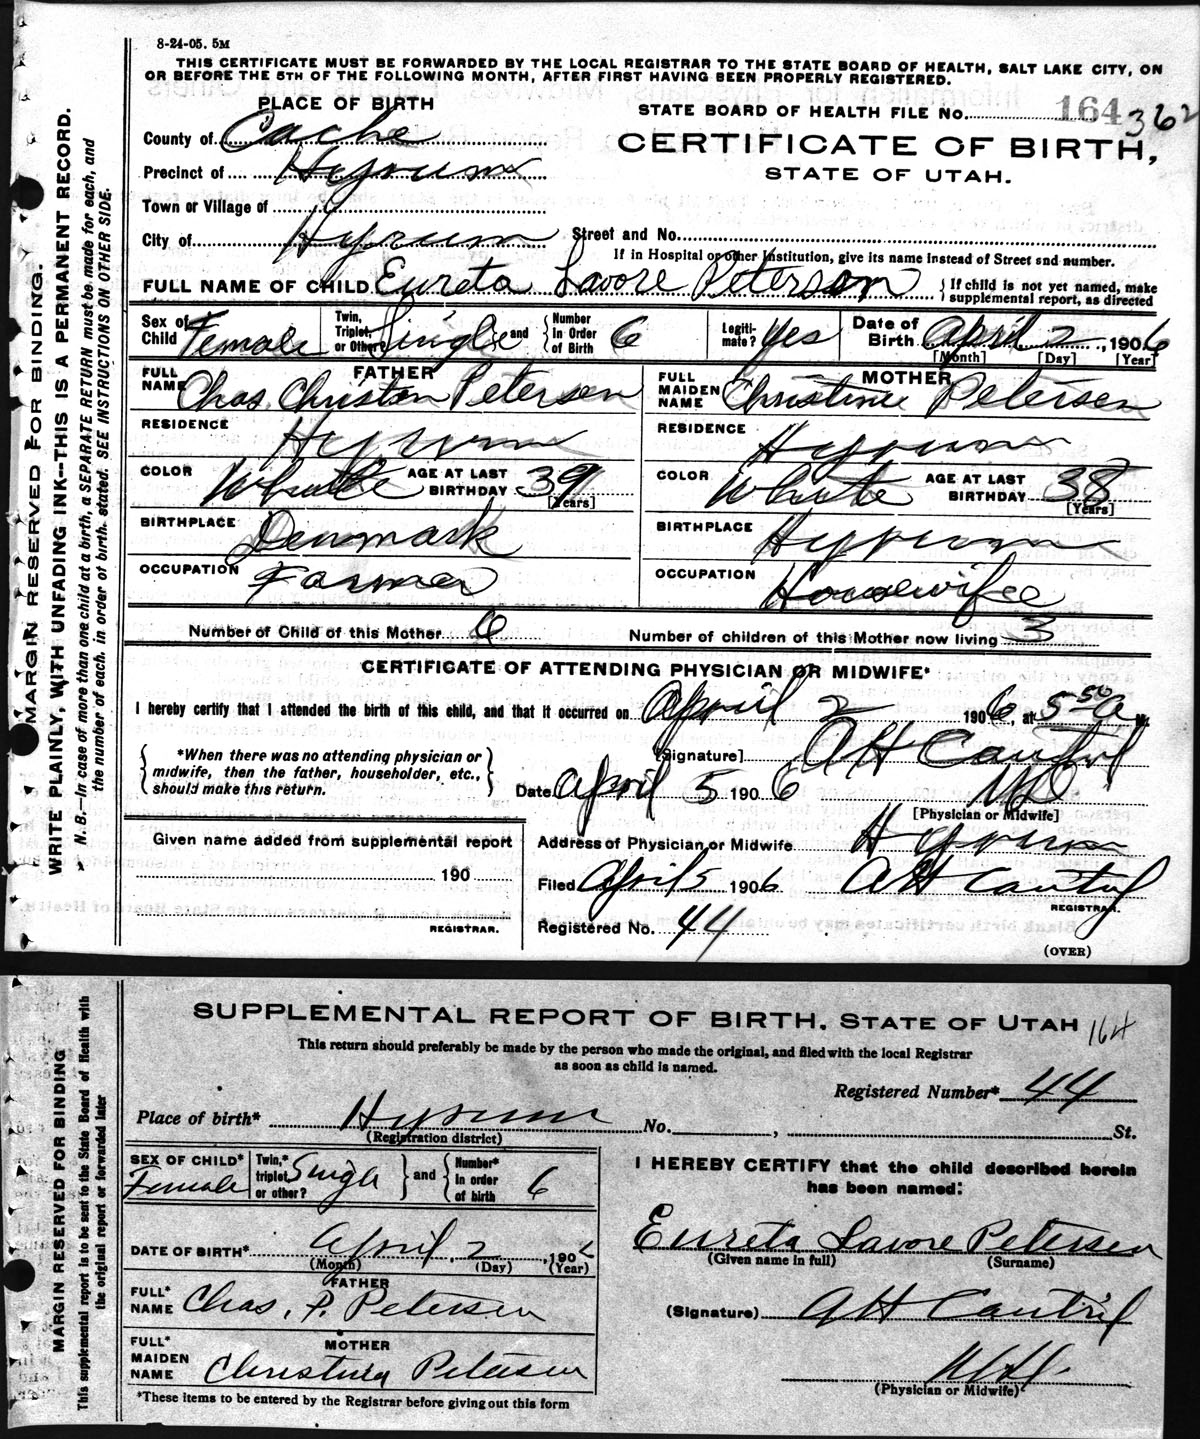 8-24-05. 5M
THIS CERTIFICATE MUST BE FORWARDED BY THE LOCAL REGISTRAR TO THE STATE BOARD OF HEALTH, SALT LAKE CITY, ON
OR BEFORE THE 5TH OF THE FOLLOWING MONTH, AFTER FIRST HAVING BEEN PROPERLY REGISTERED.
MARGIN RESERVED FOR BINDING.
WRITE PLAINLY, WITH UNFADING INK--THIS IS A PERMANENT RECORD.
N. B.--In case of more than one child at a birth, a SEPARATE RETURN must be made for each, and
the number of each, in order of birth, stated. SEE INSTRUCTIONS ON OTHER SIDE.
PLACE OF BIRTH
County of Cache
Precinct of Hyrum
Town or Village of
City of Hyrum
STATE BOARD OF HEALTH FILE No. 164 362
CERTIFICATE OF BIRTH,
STATE OF UTAH.
Street and No.
If in Hospital or other Institution, give its name instead of Street and number.
FULL NAME OF CHILD Eureta Lavore Peterson { If child is not yet named, make
supplemental report, as directed
Sex of Child Female
Twin, Triplet, or Other? Single and { Number in Order of Birth 6
Legiti-mate? Yes
Date of Birth April 2, 1906
[Month] [Day] [Year]
FATHER
FULL NAME Chas. Christan Petersen
RESIDENCE Hyrum
COLOR White AGE AT LAST BIRTHDAY 39
[Years]
BIRTHPLACE Denmark
OCCUPATION Farmer
MOTHER
FULL MAIDEN NAME Christine Petersen
RESIDENCE Hyrum
COLOR White AGE AT LAST BIRTHDAY 38
[Years]
BIRTHPLACE Hyrum
OCCUPATION Housewife
Number of Child of this Mother 6 Number of children of this Mother now living 3
CERTIFICATE OF ATTENDING PHYSICIAN OR MIDWIFE*
I hereby certify that I attended the birth of this child, and that it occurred on April 2 1906, at 5 50 a M.
{ *When there was no attending physician or
midwife, then the father, householder, etc.,
should make this return. }
[Signature] A H Cantril
Date April 5 1906 MD
[Physician or Midwife]
Given name added from supplemental report
190
REGISTRAR.
Address of Physician or Midwife Hyrum
Filed April 5 1906 A H Cantril
REGISTRAR.
Registered No. 44
(OVER)
MARGIN RESERVED FOR BINDING
This supplemental report is to be sent to the State Board of Health with
the original report or forwarded later
SUPPLEMENTAL REPORT OF BIRTH. STATE OF UTAH 164
This return should preferably be made by the person who made the original, and filed with the local Registrar
as soon as child is named.
Registered Number* 44
Place of birth* Hyrum No. , St.
(Registration district)
SEX OF CHILD* Female
Twin,* triplet, or other? Single } and { Number* in order of birth 6
DATE OF BIRTH* April 2, 1906
(Month) (Day) (Year)
FATHER
FULL* NAME Chas. P. Petersen
MOTHER
FULL* MAIDEN NAME Christina Petersen
*These items to be entered by the Registrar before giving out this form
I HEREBY CERTIFY that the child described herein
has been named:
Eureta Lavore Petersen
(Given name in full) (Surname)
(Signature) A H Cantril
(Physician or Midwife)